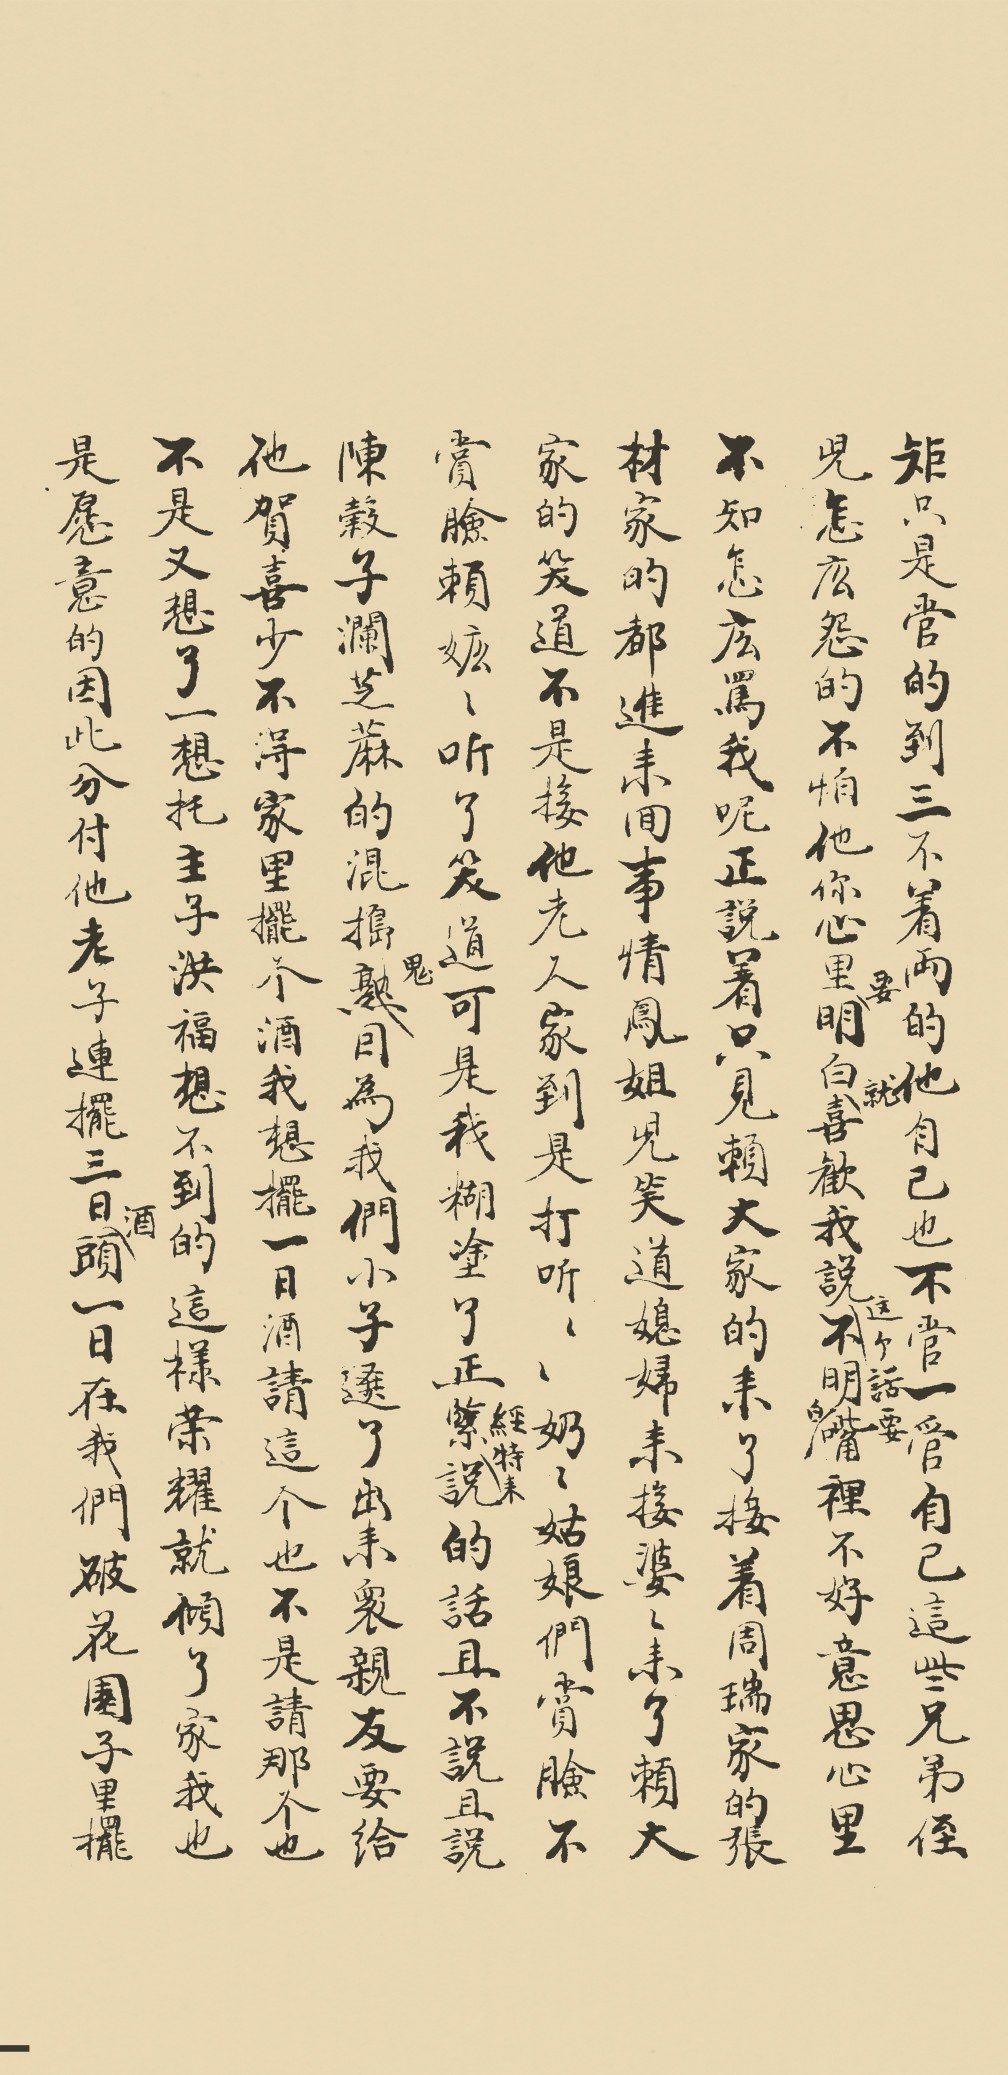 矩只是管的到三不着两的他自己也不管一管自己這些兄弟侄
兒怎庅怨的不怕他你心里要明白就喜歡我說这个話要不明白嘴裡不好意思心里
不知怎庅罵我呢正說着只見賴大家的来了接着周瑞家的張
材家的都進来囬事情鳳姐兒笑道媳婦来接婆〻来了賴大
家的笑道不是接他老人家到是打听〻〻奶〻姑娘們賞臉不
賞臉賴嬷〻听了笑道可是我糊塗了正緊經特来說的話且不說且說
陳穀子瀾芝蔴的混搗鬼熟因為我們小子選了出来衆親友要給
他賀喜少不得家里擺个酒我想擺一日酒請這个也不是請那个也
不是又想了一想托主子洪福想不到的這樣荣耀就傾了家我也
是愿意的因此分付他老子連擺三日酒頭一日在我們破花園子里擺